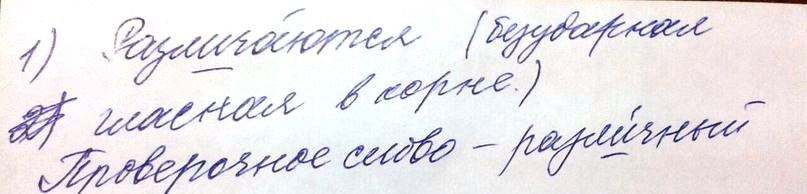 1) Различа́ются (безударная
гласная в корне.)
Проверочное слово – разли́чный